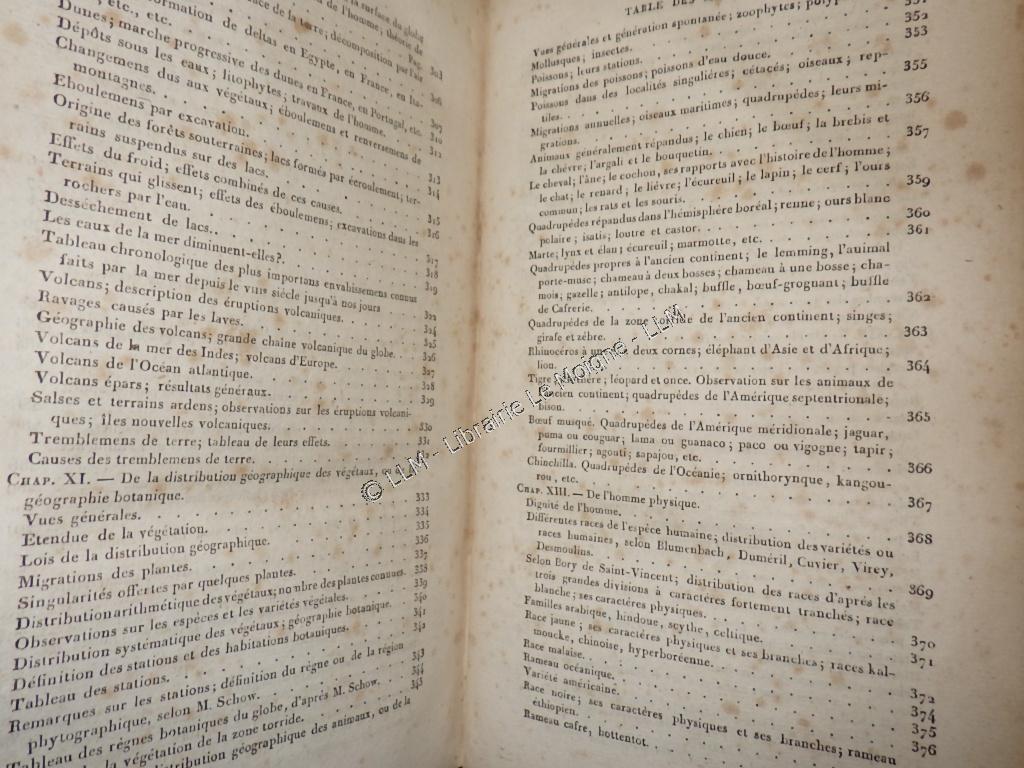 la surface du globe
de l'homme; théorie de
de la terre; décomposition par l'air
Pag.
etc., etc. 303
formation de deltas en Egypte, en France, en Ita-
Dunes; marche progressive des dunes en France, en Portugal, etc. 307
Dépôts sous les eaux; litophytes; travaux de l'homme. 310
Changemens dus aux végétaux; éboulemens et renversemens de
montagnes. 312
Eboulemens par excavation. 313
Origine des forêts souterraines; lacs formés par écroulement; ter-
rains suspendus sur des lacs. 314
Effets du froid; effets combinés de ces causes. 315
Terrains qui glissent; effets des éboulemens; excavations dans les
rochers par l'eau. 316
Desséchement de lacs. 317
Les eaux de la mer diminuent-elles?. 318
Tableau chronologique des plus importans envahissemens connus
faits par la mer depuis le VIIIe siècle jusqu'à nos jours 319
Volcans; description des éruptions volcaniques. 322
Ravages causés par les laves. 324
Géographie des volcans; grande chaîne volcanique du globe. 325
Volcans de la mer des Indes; volcans d'Europe. 326
Volcans de l'Océan atlantique. 327
Volcans épars; résultats généraux. 328
Salses et terrains ardens; observations sur les éruptions volcani- 329
ques; îles nouvelles volcaniques.
Tremblemens de terre; tableau de leurs effets. 330
Causes des tremblemens de terre. 331
CHAP. XI. — De la distribution géographique des végétaux, ou
géographie botanique.
Vues générales. 333
Etendue de la végétation. 334
Lois de la distribution géographique. 335
Migrations des plantes. 336
Singularités offertes par quelques plantes. 337
Distribution arithmétique des végétaux; nombre des plantes connues. 338
Observations sur les espèces et les variétés végétales. 339
Distribution systématique des végétaux; géographie botanique. 340
Définition des stations et des habitations botaniques. 341
Tableau des stations. 342
Remarques sur les stations; définition du règne ou de la région
phytographique, selon M. Schow. 343
Tableau des règnes botaniques du globe, d'après M. Schow. 344
de la végétation de la zone torride. 345
distribution géographique des animaux, ou de la
TABLE DES
Vues générales et génération spontanée; zoophytes; polyp
Mollusques; insectes. 352
Poissons; leurs stations. 353
Migrations des poissons; poissons d'eau douce.
Poissons dans des localités singulières; cétacés; oiseaux; rep-
tiles. 355
Migrations annuelles; oiseaux maritimes; quadrupèdes; leurs mi-
grations. 356
Animaux généralement répandus; le chien; le bœuf; la brebis et
la chèvre; l'argali et le bouquetin. 357
Le cheval; l'âne; le cochon, ses rapports avec l'histoire de l'homme;
le chat; le renard; le lièvre; l'écureuil; le lapin; le cerf; l'ours
commun; les rats et les souris. 359
Quadrupèdes répandus dans l'hémisphère boréal; renne; ours blanc
polaire; isatis; loutre et castor. 360
Marte; lynx et élan; écureuil; marmotte, etc. 361
Quadrupèdes propres à l'ancien continent; le lemming, l'animal
porte-musc; chameau à deux bosses; chameau à une bosse; cha-
mois; gazelle; antilope, chakal; buffle, bœuf-grognant; buffle
de Cafrerie. 362
Quadrupèdes de la zone torride de l'ancien continent; singes;
girafe et zèbre. 363
Rhinocéros à une et deux cornes; éléphant d'Asie et d'Afrique;
lion. 364
Tigre; panthère; léopard et once. Observation sur les animaux de
l'ancien continent; quadrupèdes de l'Amérique septentrionale;
bison. 365
Bœuf musqué. Quadrupèdes de l'Amérique méridionale; jaguar,
puma ou couguar; lama ou guanaco; paco ou vigogne; tapir;
fourmillier; agouti; sapajou, etc. 366
Chinchilla. Quadrupèdes de l'Océanie; ornithorynque, kangou-
rou, etc. 367
CHAP. XIII. — De l'homme physique.
Dignité de l'homme. 368
Différentes races de l'espèce humaine; distribution des variétés ou
races humaines, selon Blumenbach, Duméril, Cuvier, Virey,
Desmoulins. 369
Selon Bory de Saint-Vincent; distribution des races d'après les
trois grandes divisions à caractères fortement tranchés; race
blanche; ses caractères physiques. 370
Familles arabique, hindoue, scythe, celtique. 371
Race jaune; ses caractères physiques et ses branches; races kal-
moucke, chinoise, hyperboréenne. 372
Race malaise. 374
Rameau océanique. 375
Variété américaine. 376
Race noire; ses caractères physiques et ses branches; rameau
éthiopien.
Rameau cafre, hottentot.
© LLM - Librairie Le Moigne - LLM